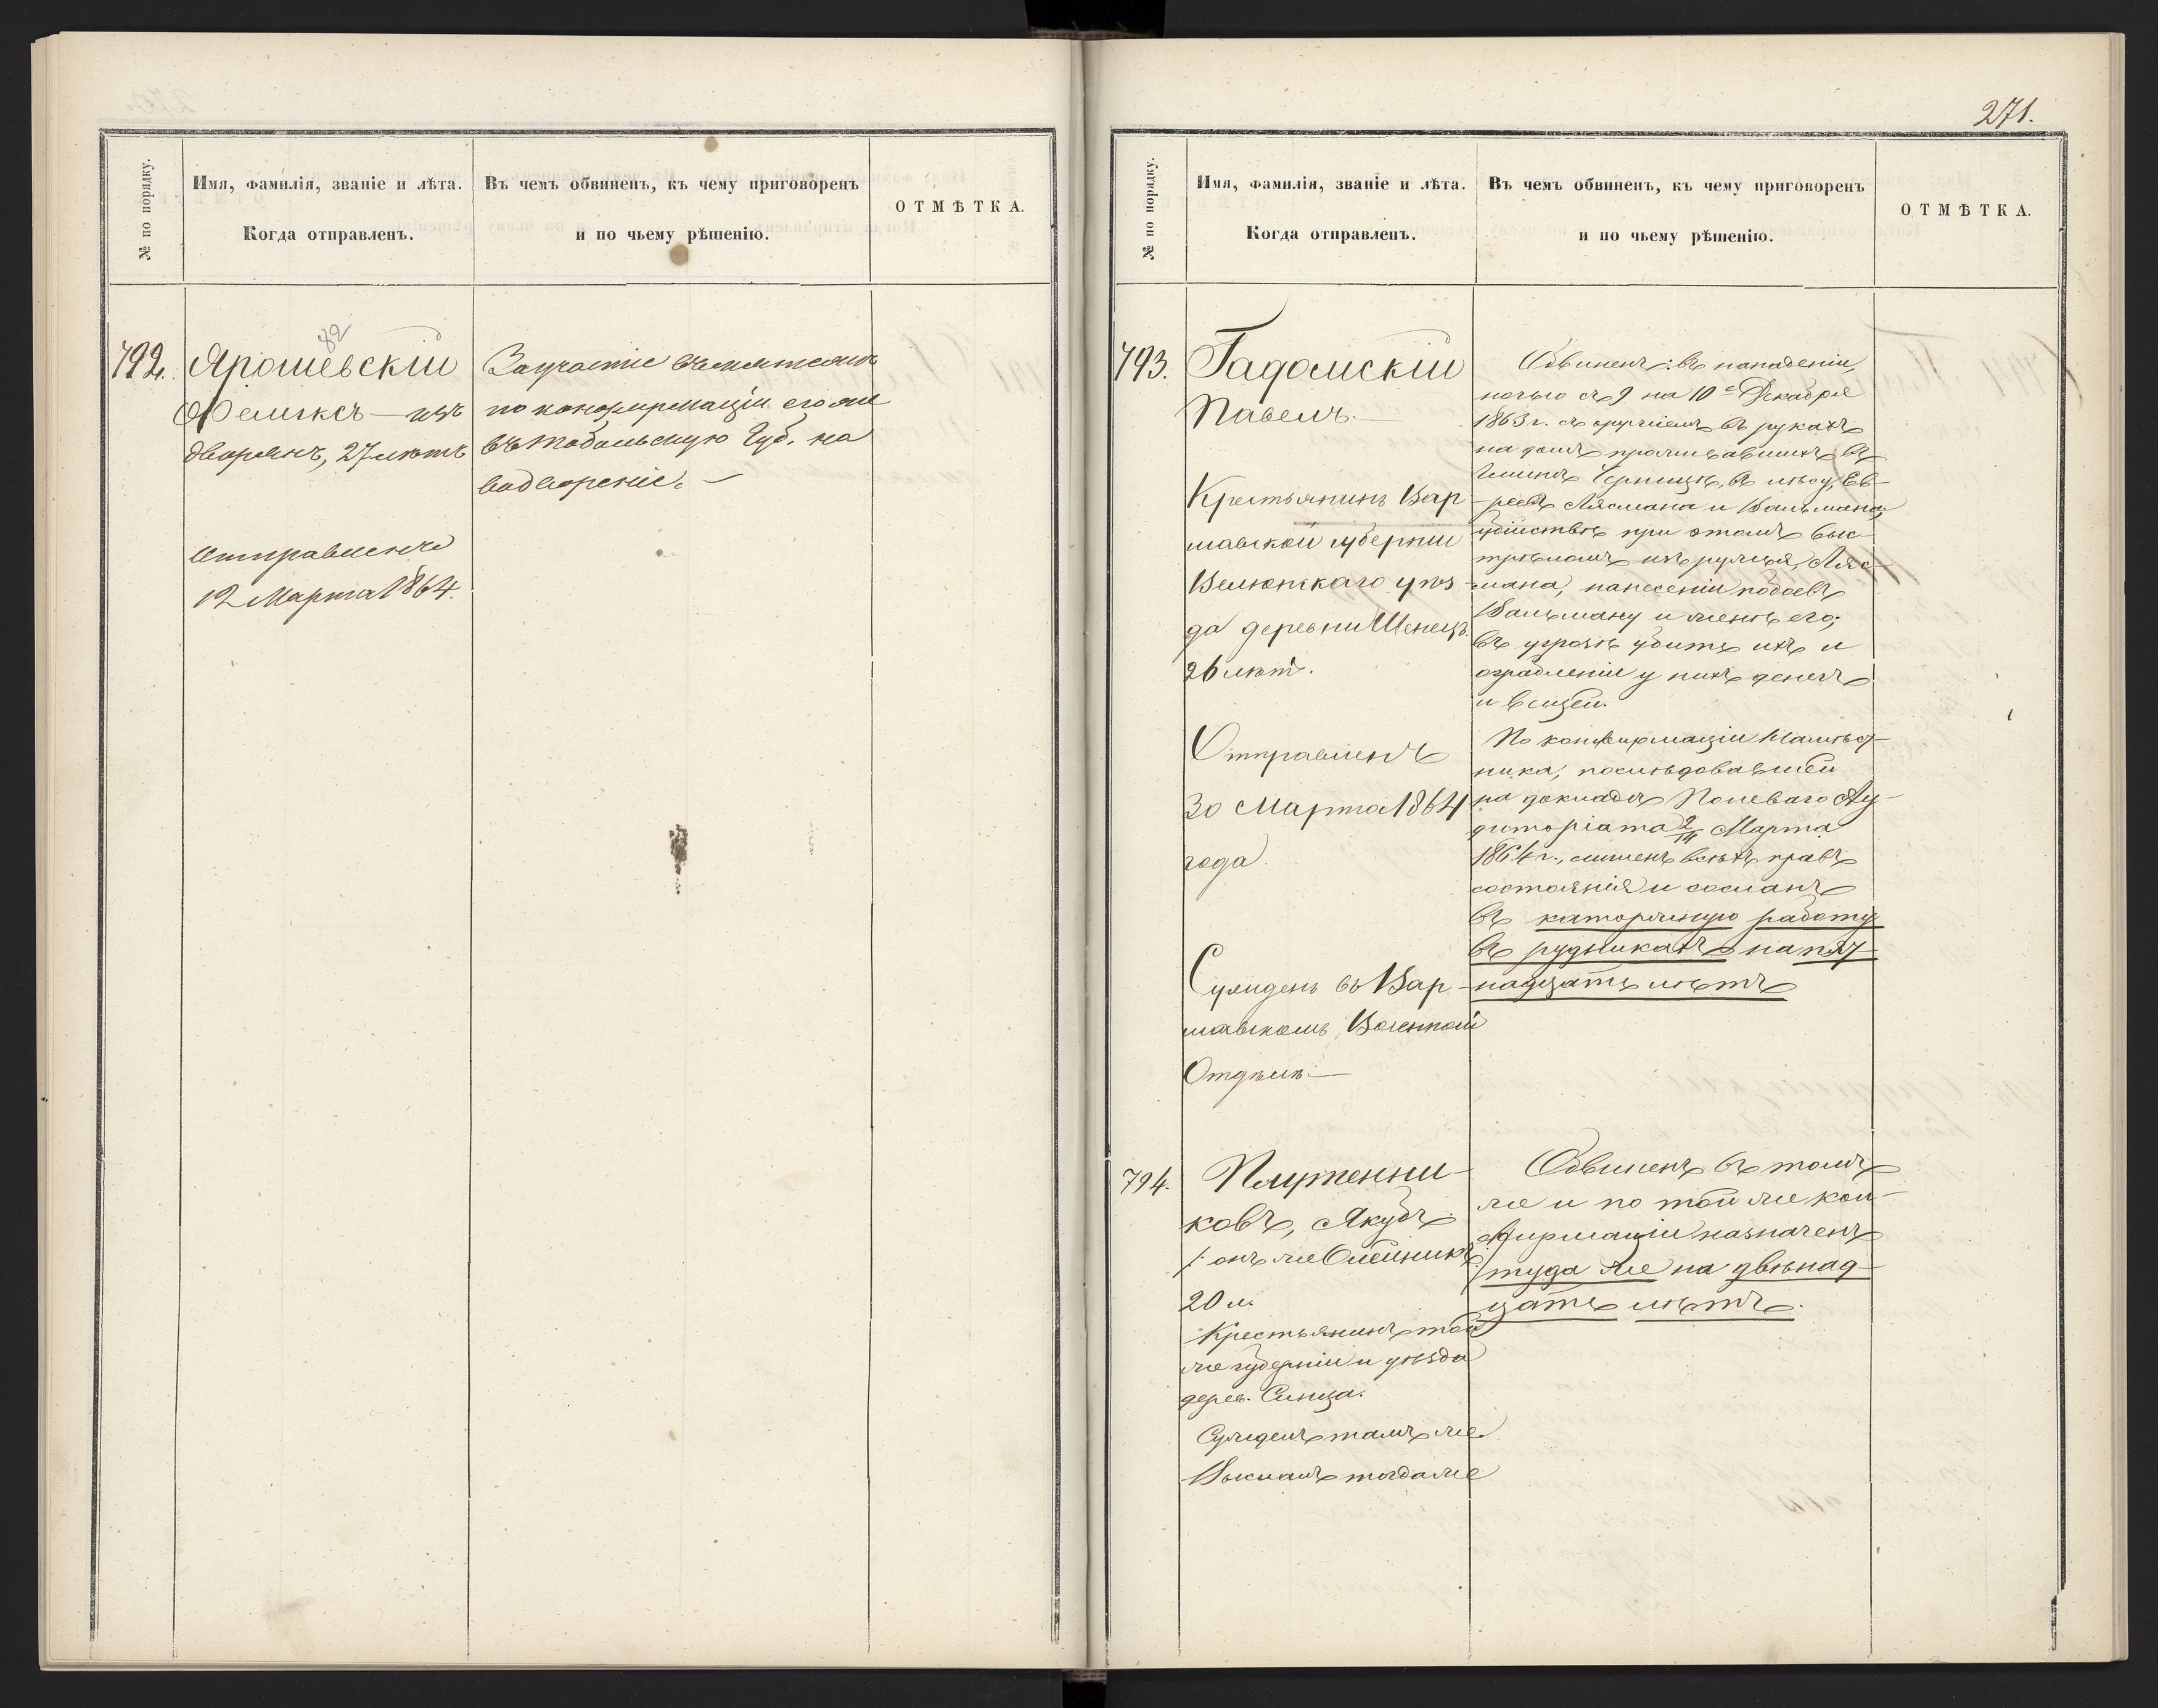 № по порядку.
Имя, фамилія, званіе и лѣта.
Когда отправленъ.
Въ чемъ обвиненъ, къ чему приговоренъ
и по чьему рѣшенію.
ОТМѢТКА.
792.
82
Ярошевскій
Феликсъ — изъ
дворянъ, 27 лѣтъ
Отправленъ
12 Марта 1864.
За участіе въ мятежѣ
по конфирмаціи его же
въ Тобольскую Губ. на
водвореніе. —
271.
№ по порядку.
Имя, фамилія, званіе и лѣта.
Когда отправленъ.
Въ чемъ обвиненъ, къ чему приговоренъ
и по чьему рѣшенію.
ОТМѢТКА.
793.
Гадомскій
Павелъ. —
Крестьянинъ Вар-
шавской губерніи
Велюнскаго уѣз-
да деревни
26 лѣт.
Отправленъ
30 Марта 1864
года
Сужденъ въ Вар-
шавскомъ Военном
Отдѣлѣ. —
Обвиненъ: въ нападеніи,
ночью съ 9 на 10е Декабря
1863 г. съ оружіемъ въ рукахъ
на домъ проживавшихъ въ
въ лѣсу, Ев-
реевъ Лясмана и Вальмана,
убійствѣ при этомъ выс-
трѣломъ изъ ружья, Ляс-
мана, нанесеніи побоевъ
Вальману и женѣ его;
въ угрозѣ убить ихъ и
ограбленіи у нихъ денегъ
и вещей.
По конфирмаціи Намѣст-
ника, послѣдовавшей
на докладѣ Полеваго Ау-
диторіата 2/14 Марта
1864 г., лишенъ всѣхъ правъ
состоянія и сосланъ
въ каторжную работу
въ рудникахъ на пят-
надцать лѣтъ
794.
ковъ, Якубъ
/: онъ же Олейникъ:/
20 л.
Крестьянинъ той
же губерніи и уѣзда
дерев.
Сужденъ тамъ же
Высланъ тогда же
Обвиненъ въ томъ
же и по той же кон-
фирмаціи назначенъ
туда же на двѣнад-
цать лѣтъ.